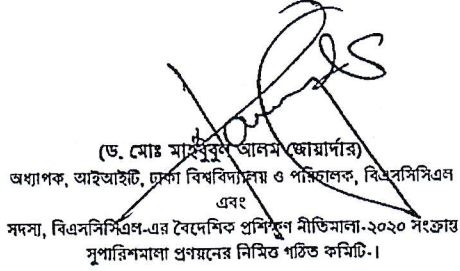 (ড. মোঃ মাহবুবুল আলম জোয়ার্দার)
অধ্যাপক, আইআইটি, ঢাকা বিশ্ববিদ্যালয় ও পরিচালক, বিএসসিসিএল
এবং
সদস্য, বিএসসিসিএল-এর বৈদেশিক প্রশিক্ষণ নীতিমালা-২০২০ সংক্রান্ত
সুপারিশমালা প্রণয়নের নিমিত্ত গঠিত কমিটি।